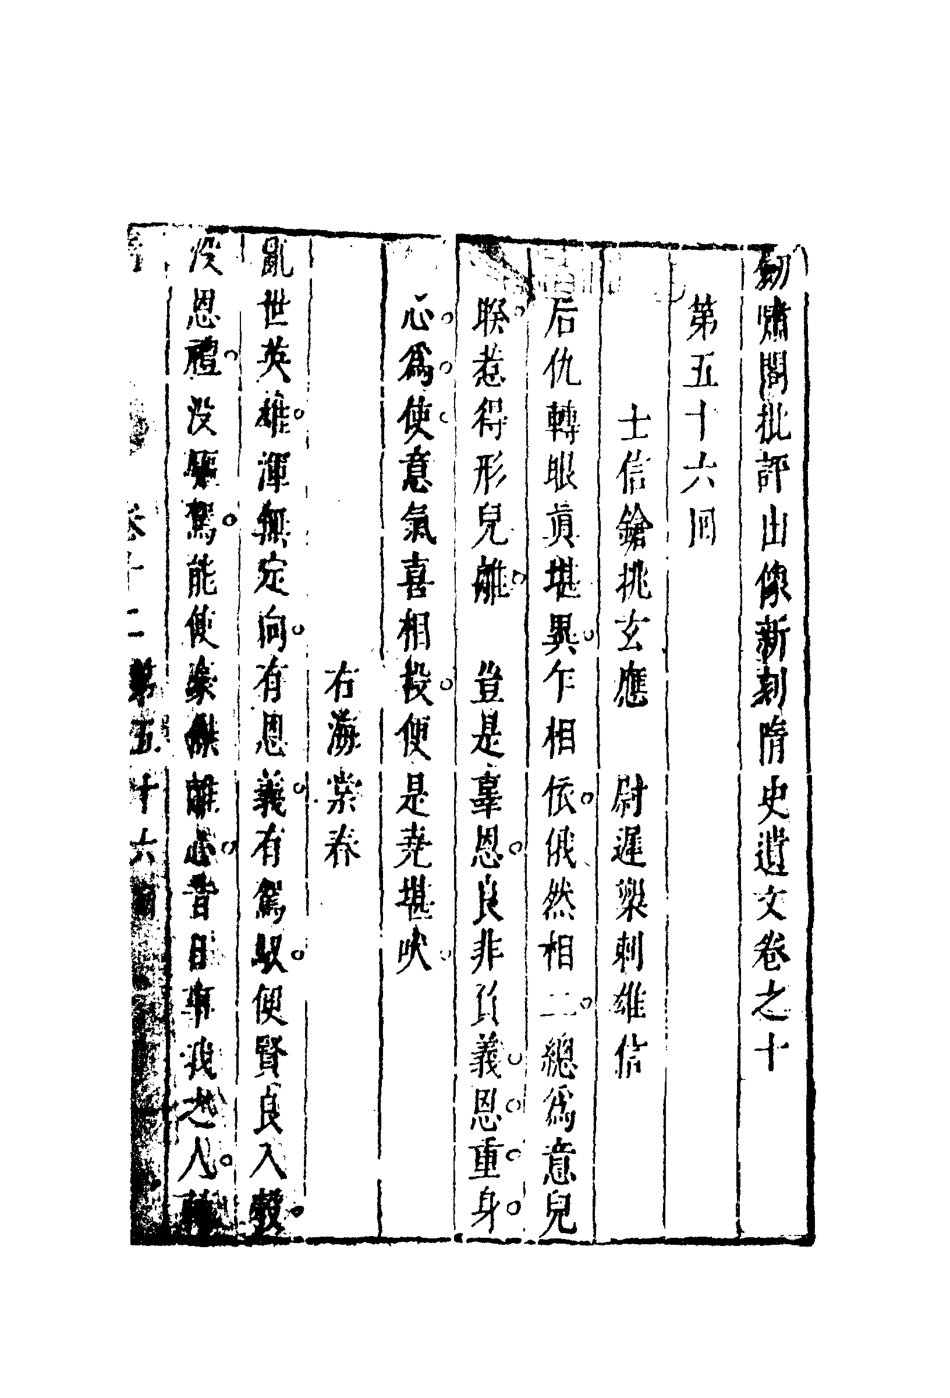 劒嘯閣批評出像新刻隋史遺文卷之十
第五十六回
士信鎗挑玄應　尉遲槊刺雄信
后仇轉眼眞堪異乍相依俄然相二總爲意兒
睽惹得形兒離　豈是辜恩良非負義恩重身
心爲使意氣喜相投便是堯堪吠
右海棠春
亂世英雄渾無定向有恩義有駕馭便賢良入彀
沒恩禮沒駕能使豪傑離心昔日事我之人
卷十二　第五十六回